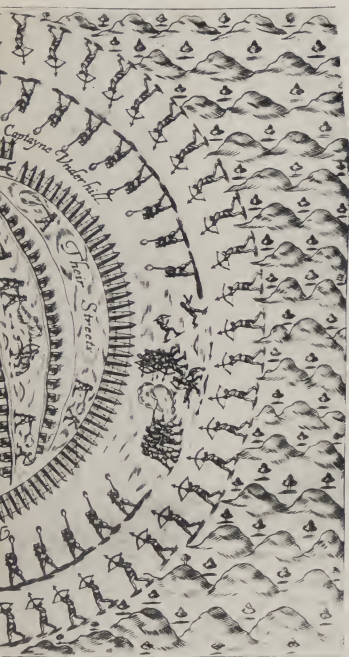 Captayne Vnderhill
Their Streets